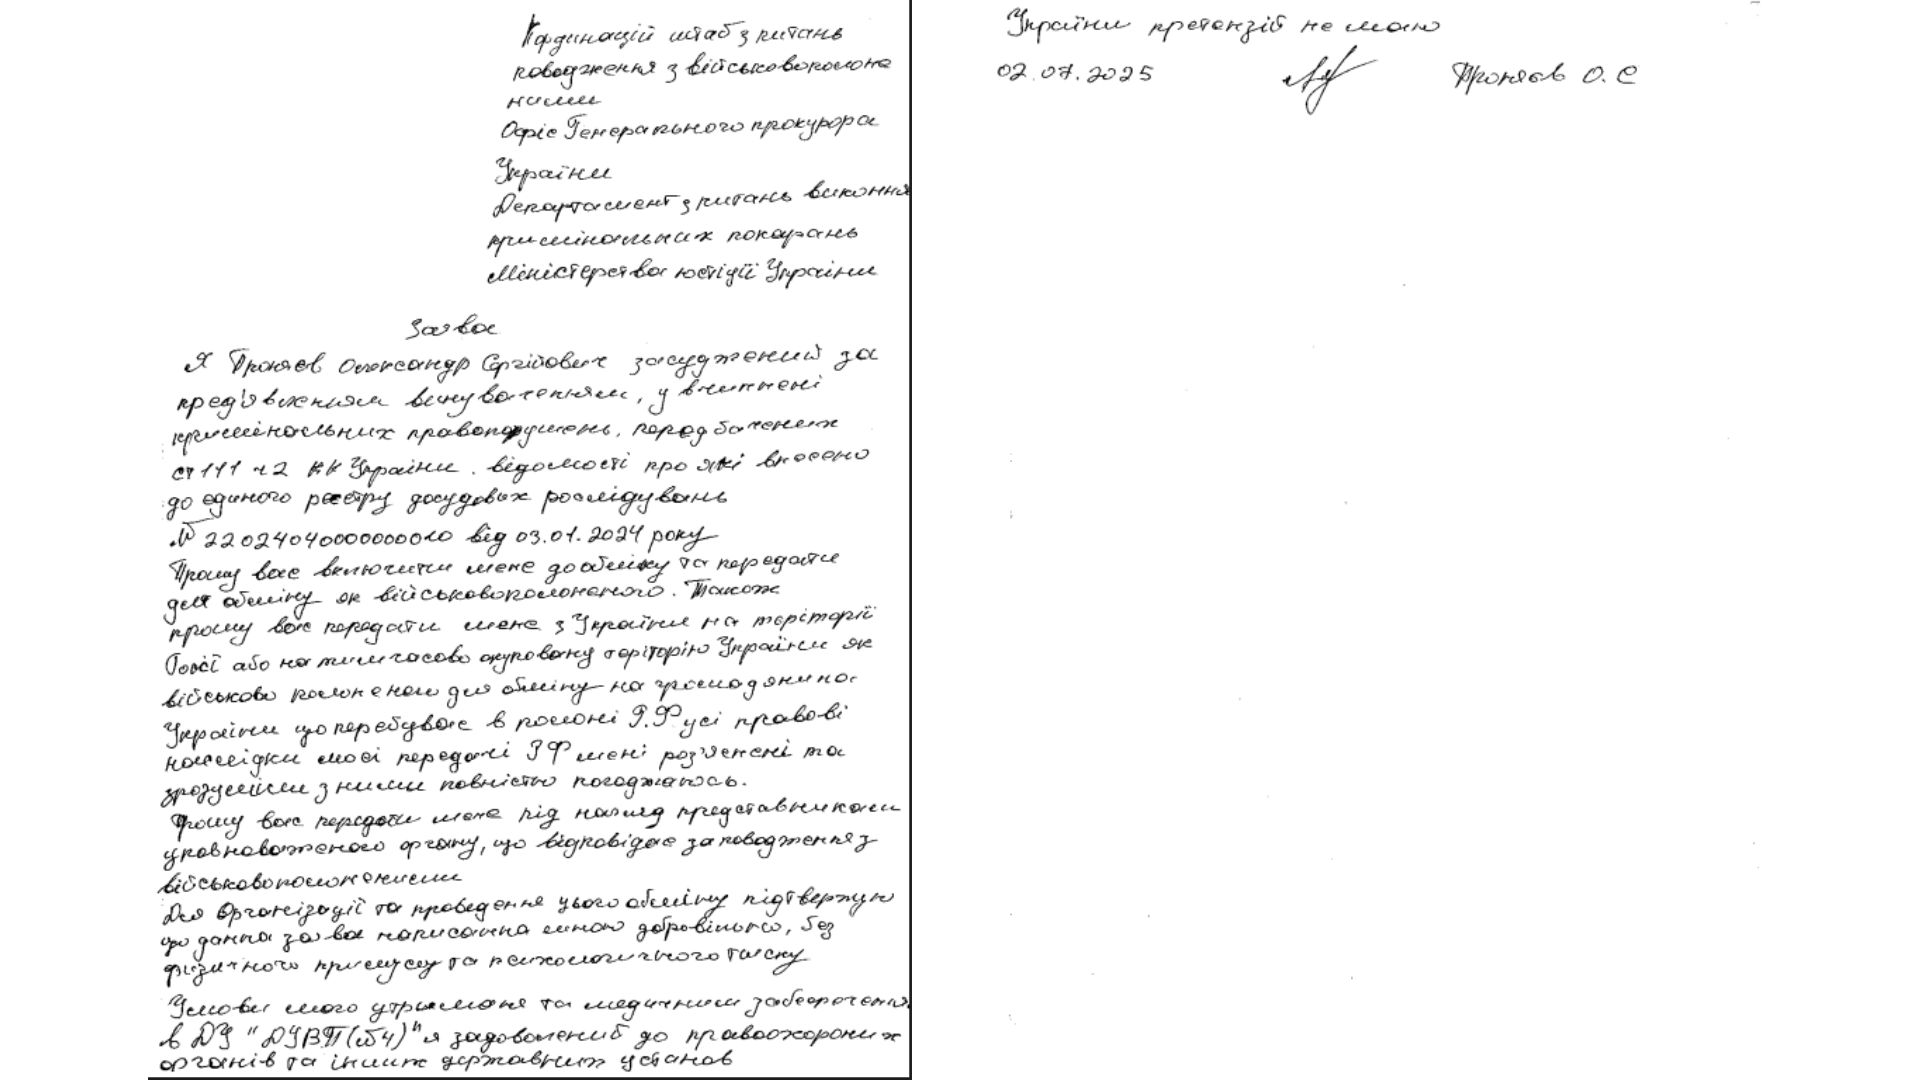 Кординацій штаб з питань
поводження з військовополоне
ними
Офіс Генерального прокурора
України
Департамент з питань виконня
кримінальних покарань
Міністерства юстіції України
Заява
Я Проняєв Олександр Сергійович засуджений за
пред'явленням винуваченням, у вчиннені
кримінальних правопорушень, передбачених
ст 111 ч 2 КК України. відомості про які внесено
до единого реєстру досудових розслідувань
№ 22024040000000010 від 03.01.2024 року
Прошу вас включити мене до обміну та передати
для обміну як військовополоненого. Також
прошу вас передати мене з України на територіі
Россї або на тимчасово окуповану територію України як
військово полоненого для обміну на громадянина
України що перебуває в полоні Р.Ф усі правові
наслідки моєї передачі РФ мені роз'яснені та
зрозумілі з ними повністю погоджаюсь.
Прошу вас передати мене під нагляд представниками
уповноваженого органу, що відповідає за поводження з
військовополоненими
Для Організації та проведення цього обміну підтвержую
що данна заява написанна мною добровільно, без
фізичного примусу та психологичного тиску
Умови мого утримане та медичним забезпечення
в ДУ "ДУВП(№4)" я задоволений до правоохорониx
органів та інших державних установ
України претензій не маю
02.07.2025 Проняєв О. С